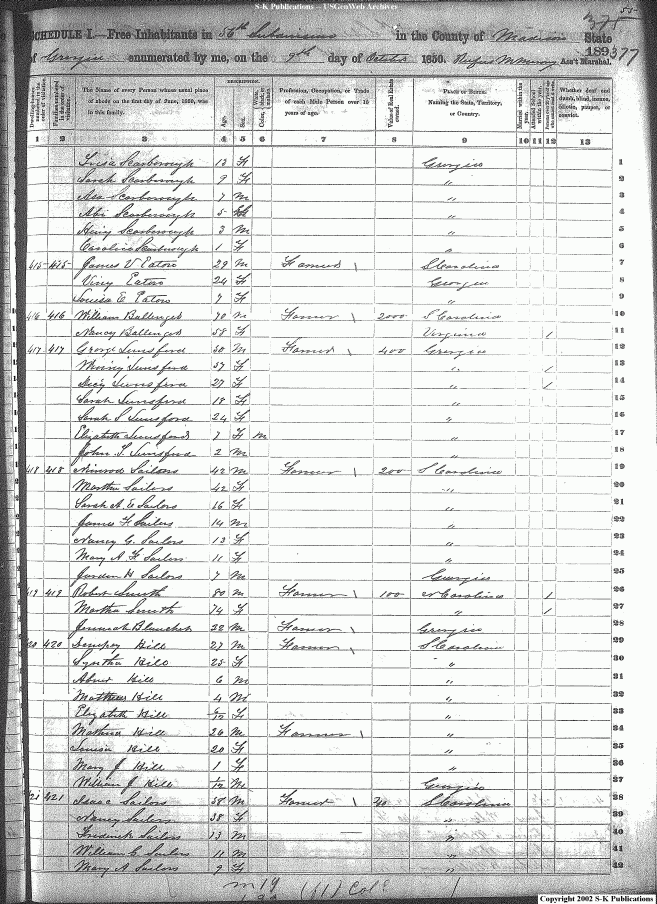 S-K Publications -- USGenWeb Archives
SCHEDULE I.—Free Inhabitants in 56th Subdivision in the County of Madison State
of Georgia enumerated by me, on the 9th day of October 1850. Ass't Marshal.
189 377
Dwelling-houses numbered in the order of visitation. Families numbered in the order of visitation. The Name of every Person whose usual place of abode on the first day of June, 1850, was in this family. DESCRIPTION. Age. Sex. Color, Profession, Occupation, or Trade of each Male Person over 15 years of age. Value of Real Estate owned. PLACE OF BIRTH. Naming the State, Territory, or Country. Married within the year. Whether deaf and dumb, blind, insane, idiotic, pauper, or convict.
1 2 3 4 5 6 7 8 9 10 11 12 13
Scarborough 13 F Georgia 1
Sarah Scarborough 9 F " 2
Asa Scarborough 7 M " 3
Abi Scarborough 5 " 4
Scarborough 3 M " 5
Caroline Scarborough 1 F " 6
415 415 James V Eaton 29 M Farmer S Carolina 7
Viny Eaton 24 F Georgia 8
Louisa E Eaton 7 F " 9
416 416 William Ballenger 70 M Farmer 2000 S Carolina 10
Nancy Ballenger 58 F Virginia 1 11
417 417 George Lunsford 30 M Farmer 400 Georgia 12
Lunsford 57 F " 1 13
Lunsford 27 F " 1 14
Sarah Lunsford 19 F " 15
Sarah S Lunsford 24 F " 16
Elizabeth Lunsford 7 F M " 17
John S. Lunsford 2 M " 18
418 418 Nimrod Sailors 42 M Farmer 200 S Carolina 19
Martha Sailors 42 F " 20
Sarah A E Sailors 16 F " 21
James F Sailors 14 M " 22
Nancy G. Sailors 13 F " 23
Mary A F Sailors 11 F " 24
Jordan H Sailors 7 M Georgia 25
419 419 Robert Smith 80 M Farmer 100 N Carolina 1 26
Martha Smith 74 F " 1 27
Jeremiah 22 M Farmer Georgia 28
20 420 Dempsey Hill 27 M Farmer S Carolina 29
Syntha Hill 25 F " 30
Abner Hill 6 M " 31
Mathew Hill 4 M " 32
Elizabeth Hill 6/12 F " 33
Hill 26 M Farmer " 34
Louisa Hill 20 F " 35
Mary J Hill 1 F " 36
William J Hill 1/12 M Georgia 37
421 421 Isaac Sailors 38 M Farmer 20 S Carolina 38
Nancy Sailors 38 F " 39
Frederick Sailors 13 M " 40
William C Sailors 11 M " 41
Mary A Sailors 9 F " 42
M 19 (11) Col
Copyright 2002 S-K Publications